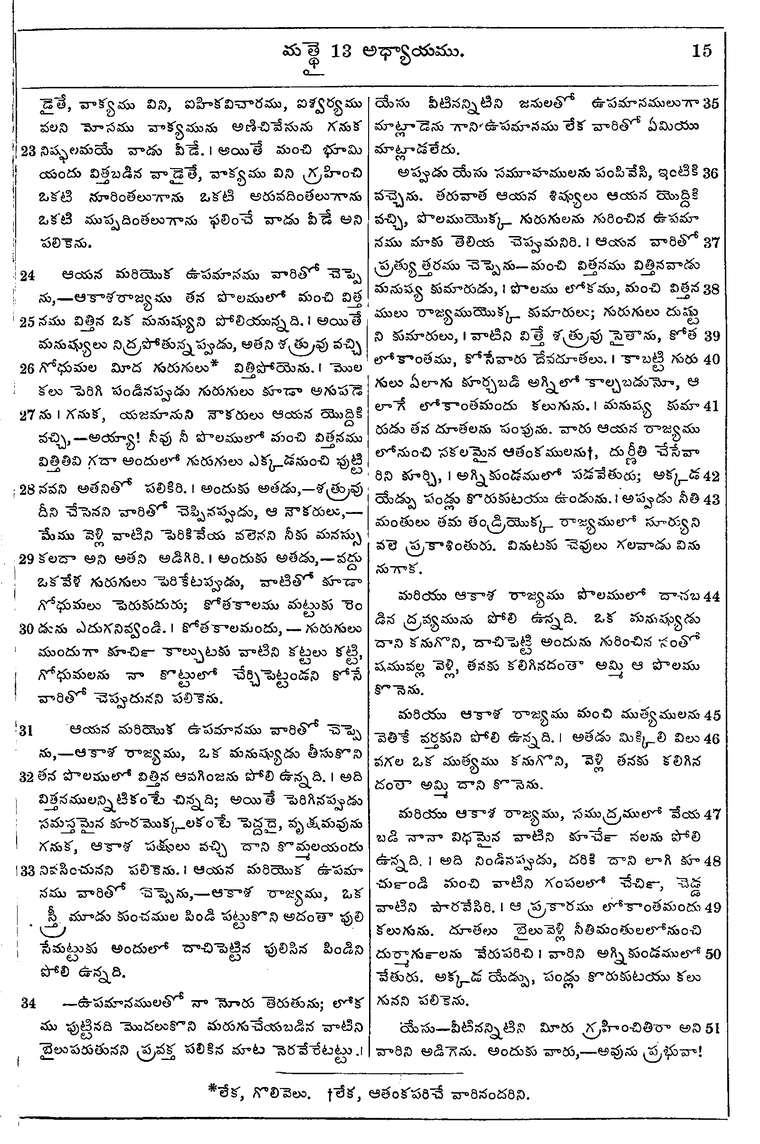 మత్థై 13 అధ్యాయము. 15
డైతే, వాక్యము విని, ఐహికవిచారము, ఐశ్వర్యము
వలని మోసము వాక్యమును అణిచివేసును గనుక
23 నిష్ఫలమయే వాడు వీడే. । అయితే మంచి భూమి
యందు విత్తబడిన వాడైతే, వాక్యము విని గ్రహించి
ఒకటి నూరింతలుగాను ఒకటి అరువదింతలుగాను
ఒకటి ముప్పదింతలుగాను ఫలించే వాడు వీడే అని
పలికెను.
24 ఆయన మరియొక ఉపమానము వారితో చెప్పె
ను,—ఆకాశరాజ్యము తన పొలములో మంచి విత్త
25 నము విత్తిన ఒక మనుష్యుని పోలియున్నది. । అయితే
మనుష్యులు నిద్రపోతున్నప్పుడు, అతని శత్రువు వచ్చి
26 గోధుమల మీద గురుగులు* విత్తిపోయెను. । మొల
కలు పెరిగి పండినప్పుడు గురుగులు కూడా అగుపడె
27 ను । గనుక, యజమానుని నౌకరులు ఆయన యొద్దికి
వచ్చి,—అయ్యా! నీవు నీ పొలములో మంచి విత్తనము
విత్తితివి గదా అందులో గురుగులు ఎక్కడనుంచి పుట్టి
28 నవని అతనితో పలికిరి. । అందుకు అతడు,—శత్రువు
దీని చేసెనని వారితో చెప్పినప్పుడు, ఆ నౌకరులు,—
మేము వెళ్లి వాటిని పెరికివేయ వలెనని నీకు మనస్సు
29 కలదా అని అతని అడిగిరి. । అందుకు అతడు,—వద్దు
ఒకవేళ గురుగులు పెరికేటప్పుడు, వాటితో కూడా
గోధుమలు పెరుకుదురు; కోతకాలము మట్టుకు రెం
30 డును ఎదుగనివ్వండి. । కోతకాలమందు,— గురుగులు
ముందుగా కూర్చి కాల్చుటకు వాటిని కట్టలు కట్టి,
గోధుమలను నా కొట్టులో చేర్చిపెట్టండని కోసే
వారితో చెప్పుదునని పలికెను.
31 ఆయన మరియొక ఉపమానము వారితో చెప్పె
ను,—ఆకాశ రాజ్యము, ఒక మనుష్యుడు తీసుకొని
32 తన పొలములో విత్తిన ఆవగింజను పోలి ఉన్నది. । అది
విత్తనములన్నిటికంటే చిన్నది; అయితే పెరిగినప్పుడు
సమస్తమైన కూరమొక్కలకంటే పెద్దదై, వృక్షమవును
గనుక, ఆకాశ పక్షులు వచ్చి దాని కొమ్మలయందు
33 నివసించునని పలికెను. । ఆయన మరియొక ఉపమా
నము వారితో చెప్పెను,—ఆకాశ రాజ్యము, ఒక
స్త్రీ మూడు కుంచముల పిండి పట్టుకొని అదంతా పులి
సేమట్టుకు అందులో దాచిపెట్టిన పులిసిన పిండిని
పోలి ఉన్నది.
34 —ఉపమానములతో నా నోరు తెరుతును; లోక
ము పుట్టినది మొదలుకొని మరుగుచేయబడిన వాటిని
బైలుపరుతునని ప్రవక్త పలికిన మాట నెరవేరేటట్టు. ।
యేసు వీటినన్నిటిని జనులతో ఉపమానములుగా 35
మాట్లాడెను గాని ఉపమానము లేక వారితో ఏమియు
మాట్లాడలేదు.
అప్పుడు యేసు సమూహములను పంపివేసి, ఇంటికి 36
వచ్చెను. తరువాత ఆయన శిష్యులు ఆయన యొద్దికి
వచ్చి, పొలముయొక్క గురుగులను గురించిన ఉపమా
నము మాకు తెలియ చెప్పుమనిరి. । ఆయన వారితో 37
ప్రత్యుత్తరము చెప్పెను—మంచి విత్తనము విత్తినవాడు
మనుష్య కుమారుడు, । పొలము లోకము, మంచి విత్తన 38
ములు రాజ్యముయొక్క కుమారులు; గురుగులు దుష్టు
ని కుమారులు, । వాటిని విత్తే శత్రువు సైతాను, కోత 39
లోకాంతము, కోసేవారు దేవదూతలు. । కాబట్టి గురు 40
గులు ఏలాగు కూర్చబడి అగ్నిలో కాల్చబడునో, ఆ
లాగే లోకాంతమందు కలుగును. । మనుష్య కుమా 41
రుడు తన దూతలను పంపును. వారు ఆయన రాజ్యము
లోనుంచి సకలమైన ఆతంకములను†, దుర్ణీతి చేసేవా
రిని కూర్చి, । అగ్నికుండములో పడవేతురు; అక్కడ 42
యేడ్పు పండ్లు కొరుకుటయు ఉండును. । అప్పుడు నీతి 43
మంతులు తమ తండ్రియొక్క రాజ్యములో సూర్యుని
వలె ప్రకాశింతురు. వినుటకు చెవులు గలవాడు విను
నుగాక.
మరియు ఆకాశ రాజ్యము పొలములో దాచబ 44
డిన ద్రవ్యమును పోలి ఉన్నది. ఒక మనుష్యుడు
దాని కనుగొని, దాచిపెట్టి అందును గురించిన సంతో
షమువల్ల వెళ్లి, తనకు కలిగినదంతా అమ్మి ఆ పొలము
కొనెను.
మరియు ఆకాశ రాజ్యము మంచి ముత్యములను 45
వెతికే వర్తకుని పోలి ఉన్నది. । అతడు మిక్కిలి విలు 46
వగల ఒక ముత్యము కనుగొని, వెళ్లి తనకు కలిగిన
దంతా అమ్మి దాని కొనెను.
మరియు ఆకాశ రాజ్యము, సముద్రములో వేయ 47
బడి నానా విధమైన వాటిని కూర్చే వలను పోలి
ఉన్నది. । అది నిండినప్పుడు, దరికి దాని లాగి కూ 48
ర్చుండి మంచి వాటిని గంపలలో చేర్చి, చెడ్డ
వాటిని పారవేసిరి. । ఆ ప్రకారము లోకాంతమందు 49
కలుగును. దూతలు బైలువెళ్లి నీతిమంతులలోనుంచి
దుర్మార్గులను వేరుపరిచి । వారిని అగ్నికుండములో 50
వేతురు. అక్కడ యేడ్పు, పండ్లు కొరుకుటయు కలు
గునని పలికెను.
యేసు—వీటినన్నిటిని మీరు గ్రహించితిరా అని 51
వారిని అడిగెను. అందుకు వారు,—అవును ప్రభువా!
*లేక, గొలివెలు. †లేక, ఆతంకపరిచే వారినందరిని.